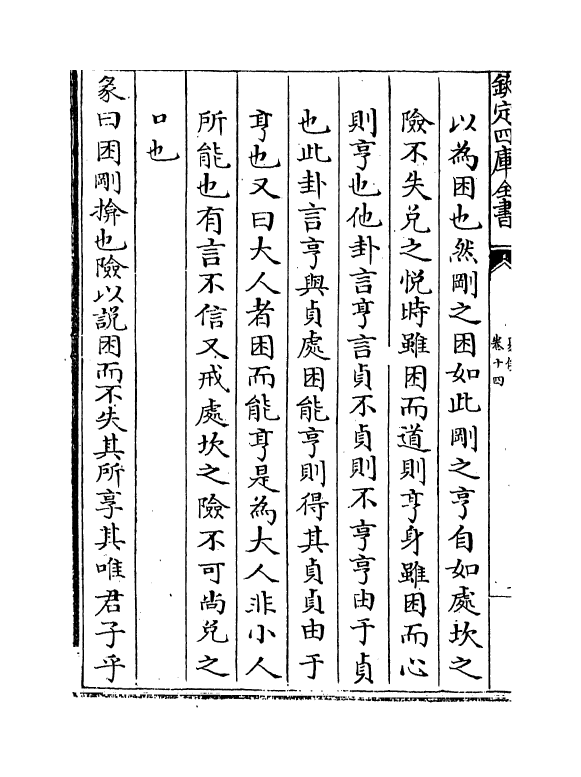 欽定四庫全書
卷十四
以為困也然剛之困如此剛之亨自如處坎之
險不失兌之悅時雖困而道則亨身雖困而心
則亨也他卦言亨言貞不貞則不亨亨由于貞
也此卦言亨與貞處困能亨則得其貞貞由于
亨也又曰大人者困而能亨是為大人非小人
所能也有言不信又戒處坎之險不可尚兌之
口也
彖曰困剛揜也險以說困而不失其所亨其唯君子乎